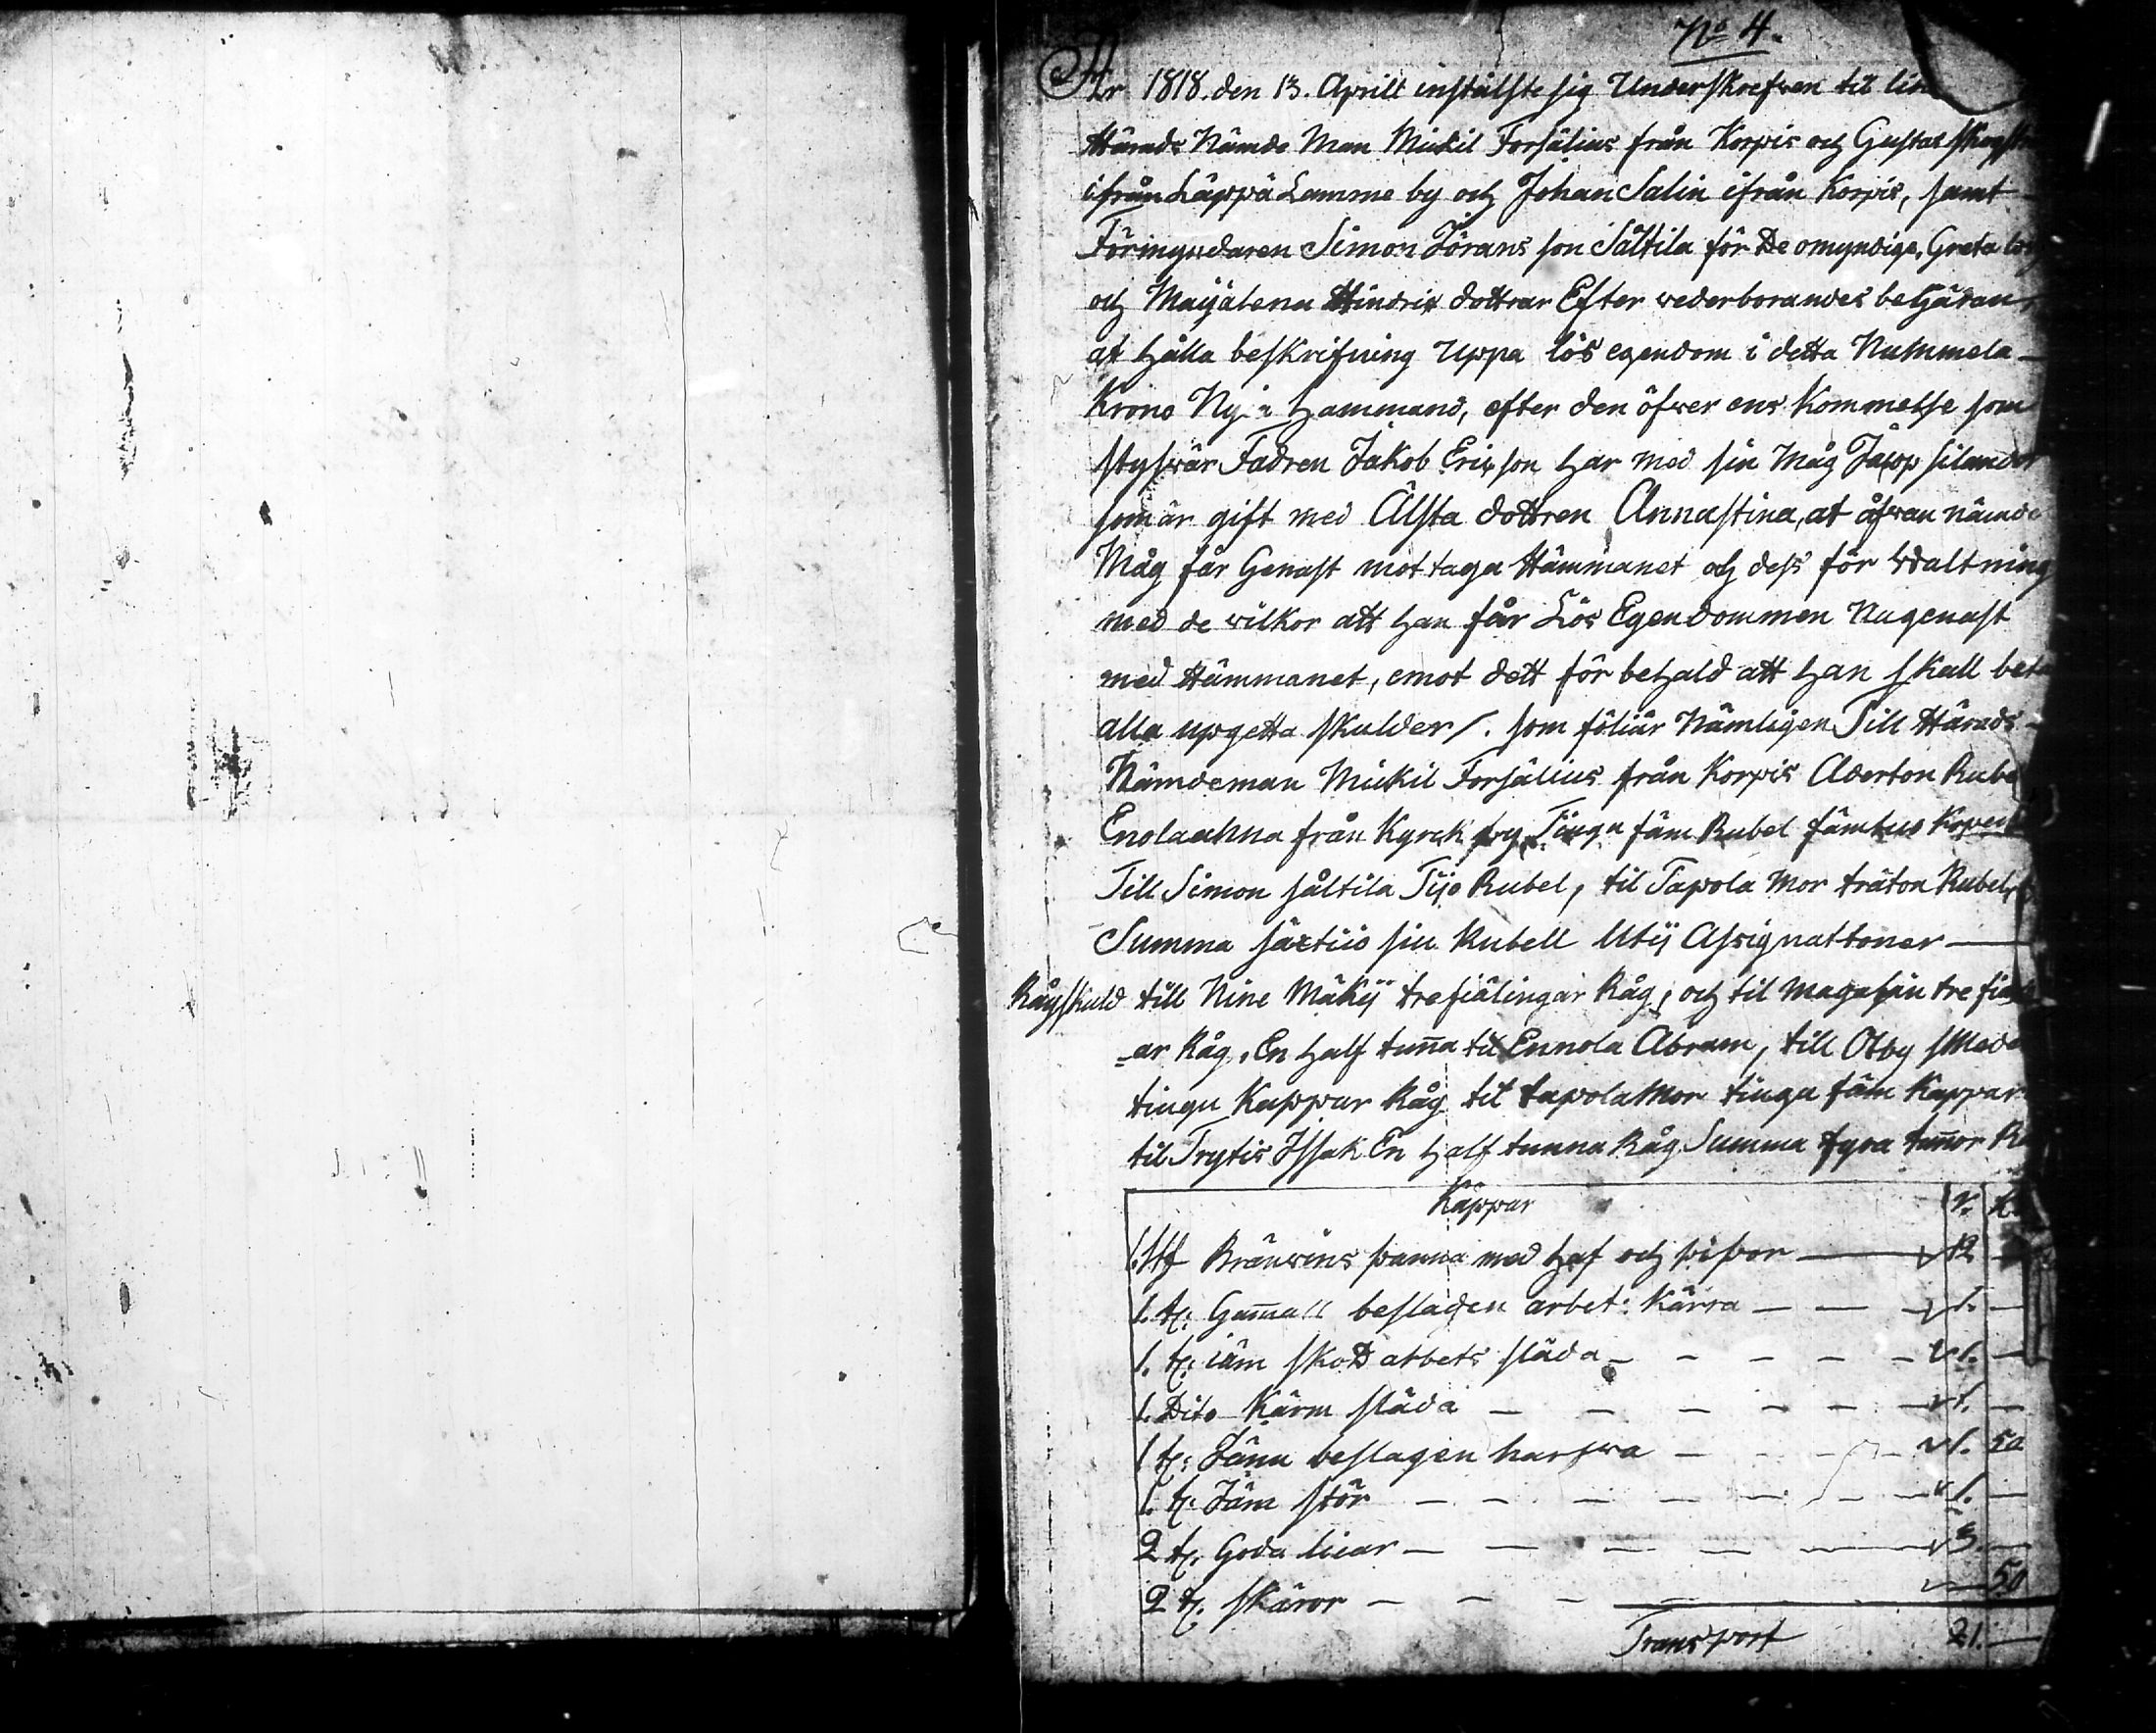 No 4.
År 1818. den 13. Aprill instälste sig Underskrefwen til
Härads Nämde Man Mickil Forsälius från Korpis och Gustas
ifrån Läppä Lamme by och Johan Salin ifrån Korpis, samt
Förmyndaren Simon Jörans son Såltila för De omyndige, Greta
och Mayalena Hindrix dottrar Efter wederborandes begäran
at hålla beskrifning uppa lös egendom i detta Nummela
Krono Ny hammand, efter den öfwer ens Kommelse som
styfwär Fadren Jakob Erixson har med sin Måg Jaopp silander
som är gift med Älsta dottren Annastina, at åfwan nämde
Måg får Genast mot taga Hämmanet och dess för Waltning
med de wilkor att han får Lös Egendommen Nugenast
med Hämmanet, emot dett för behald att han skall
alla upgetta skulder /. som föliär Nämligen Till Härads
Nämdeman Mickil Forsälius från Korpis Aderton
Enolaahna från Kyrck by Tiugu fäm Rubel fämtiio
Till Simon såltila Tijo Rubel, til Tapola Mor träton Rubel,
Summa säxtiio siu Rubell Utij Assignattoner
Rågskuld till Nine Mäkij trefiälingar Råg, och til magasin tre
ar Råg, En half tunna til Ennola Abram, till Otby
tiugu Kappar Råg til tapolamor tiugu fäm Kappar
til Trytis Issak En half tunna Råg Summa fyra tunnor
Kappar r.
1. Stf Bränwins panna med haf och pipor 12
1. tt: Gamall beslagen arbet: Kärra 1. —
1. tt: iärn skod arbets släda 1. —
1. Dito Karm släda 1. —
1 tt: Järn beslagen harfwa 1. 50
1. tt: Järn stör 1. —
2 tt. Goda liear 3. —
2 tt. skäror — 50
Transport 21. —